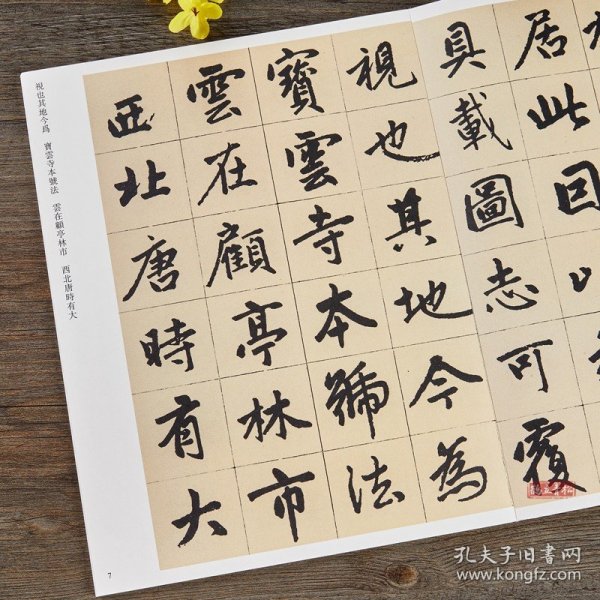 居此回
具載圖志可覆
視也其地今為
寶雲寺本號法
雲在顧亭林市
西北唐時有大
視也其地今爲 寶雲寺本號法 雲在顧亭林市 西北唐時有大
7
孔夫子旧書网
www.kongfz.com